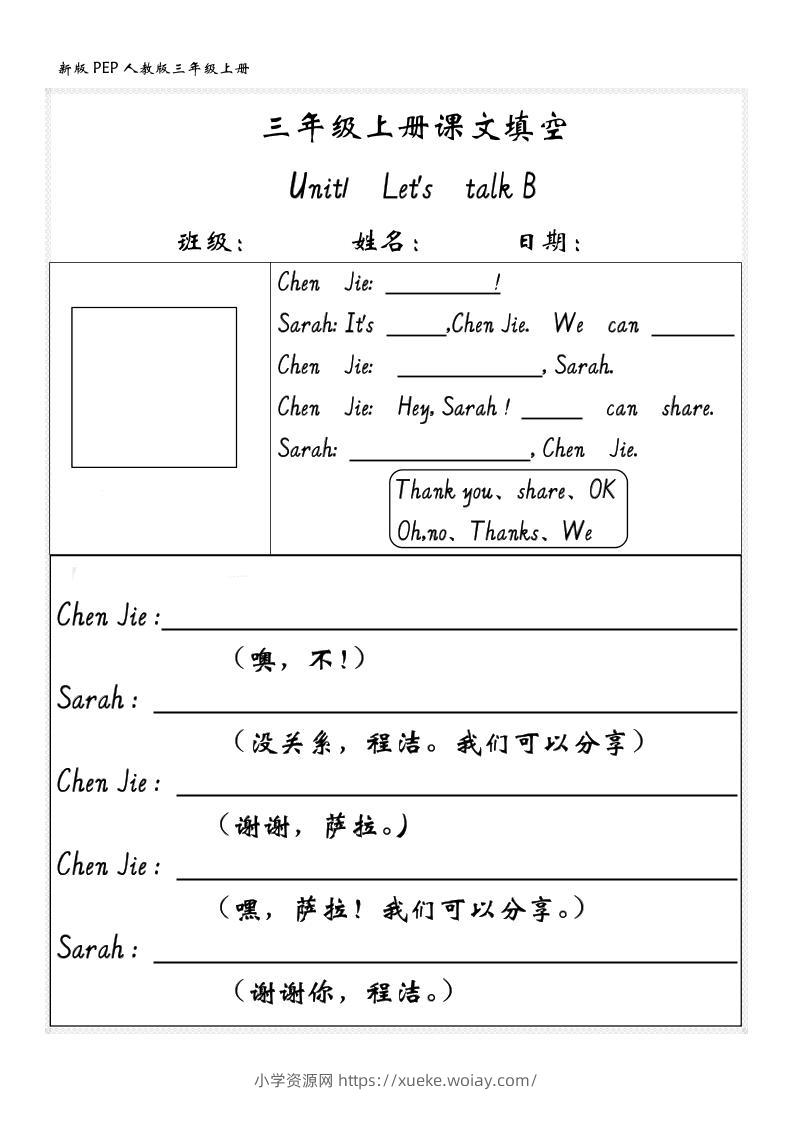 新版 PEP 人教版三年级上册
三年级上册课文填空
Unit1 Let's talk B
班级： 姓名： 日期：
Chen Jie: __________!
Sarah: It's _____,Chen Jie. We can _______
Chen Jie: ____________, Sarah.
Chen Jie: Hey, Sarah! _____ can share.
Sarah: _______________, Chen Jie.
Thank you、share、OK
Oh,no、Thanks、We
Chen Jie:
（噢，不!）
Sarah:
（没关系，程洁。我们可以分享）
Chen Jie:
（谢谢，萨拉。)
Chen Jie:
（嘿，萨拉！我们可以分享。）
Sarah:
（谢谢你，程洁。）
小学资源网 https://xueke.woiay.com/